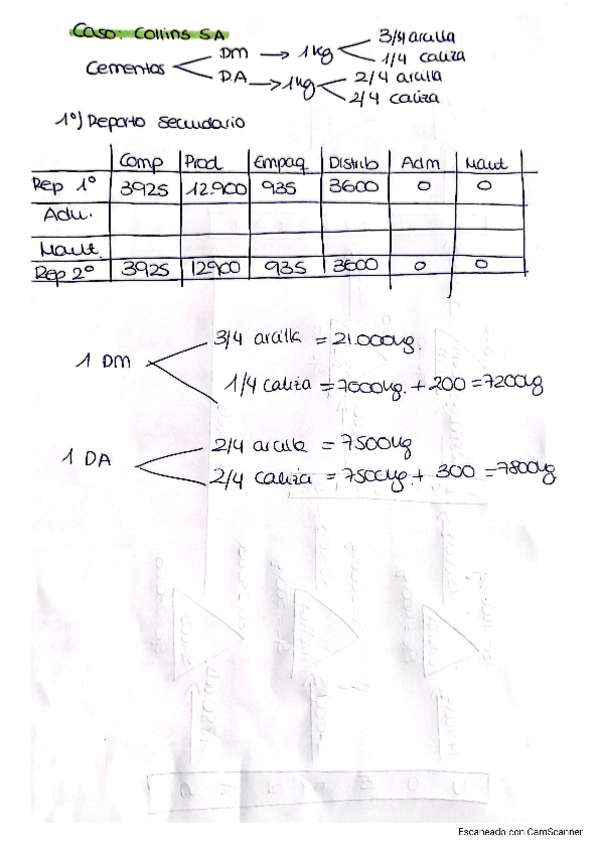 Caso: Collins SA
Cementos DM → 1kg 3/4 arcilla
1/4 caliza
DA → 1kg 2/4 arcilla
2/4 caliza
1º) Reparto secundario
Comp Prod Empaq Distrib Adm Mant
Rep 1º 3925 12.900 935 3600 0 0
Adm.
Mant.
Rep 2º 3925 12900 935 3600 0 0
1 DM 3/4 arcilla = 21.000kg.
1/4 caliza = 7000kg. + 200 = 7200kg
1 DA 2/4 arcilla = 7500kg
2/4 caliza = 7500kg + 300 = 7800kg
Escaneado con CamScanner